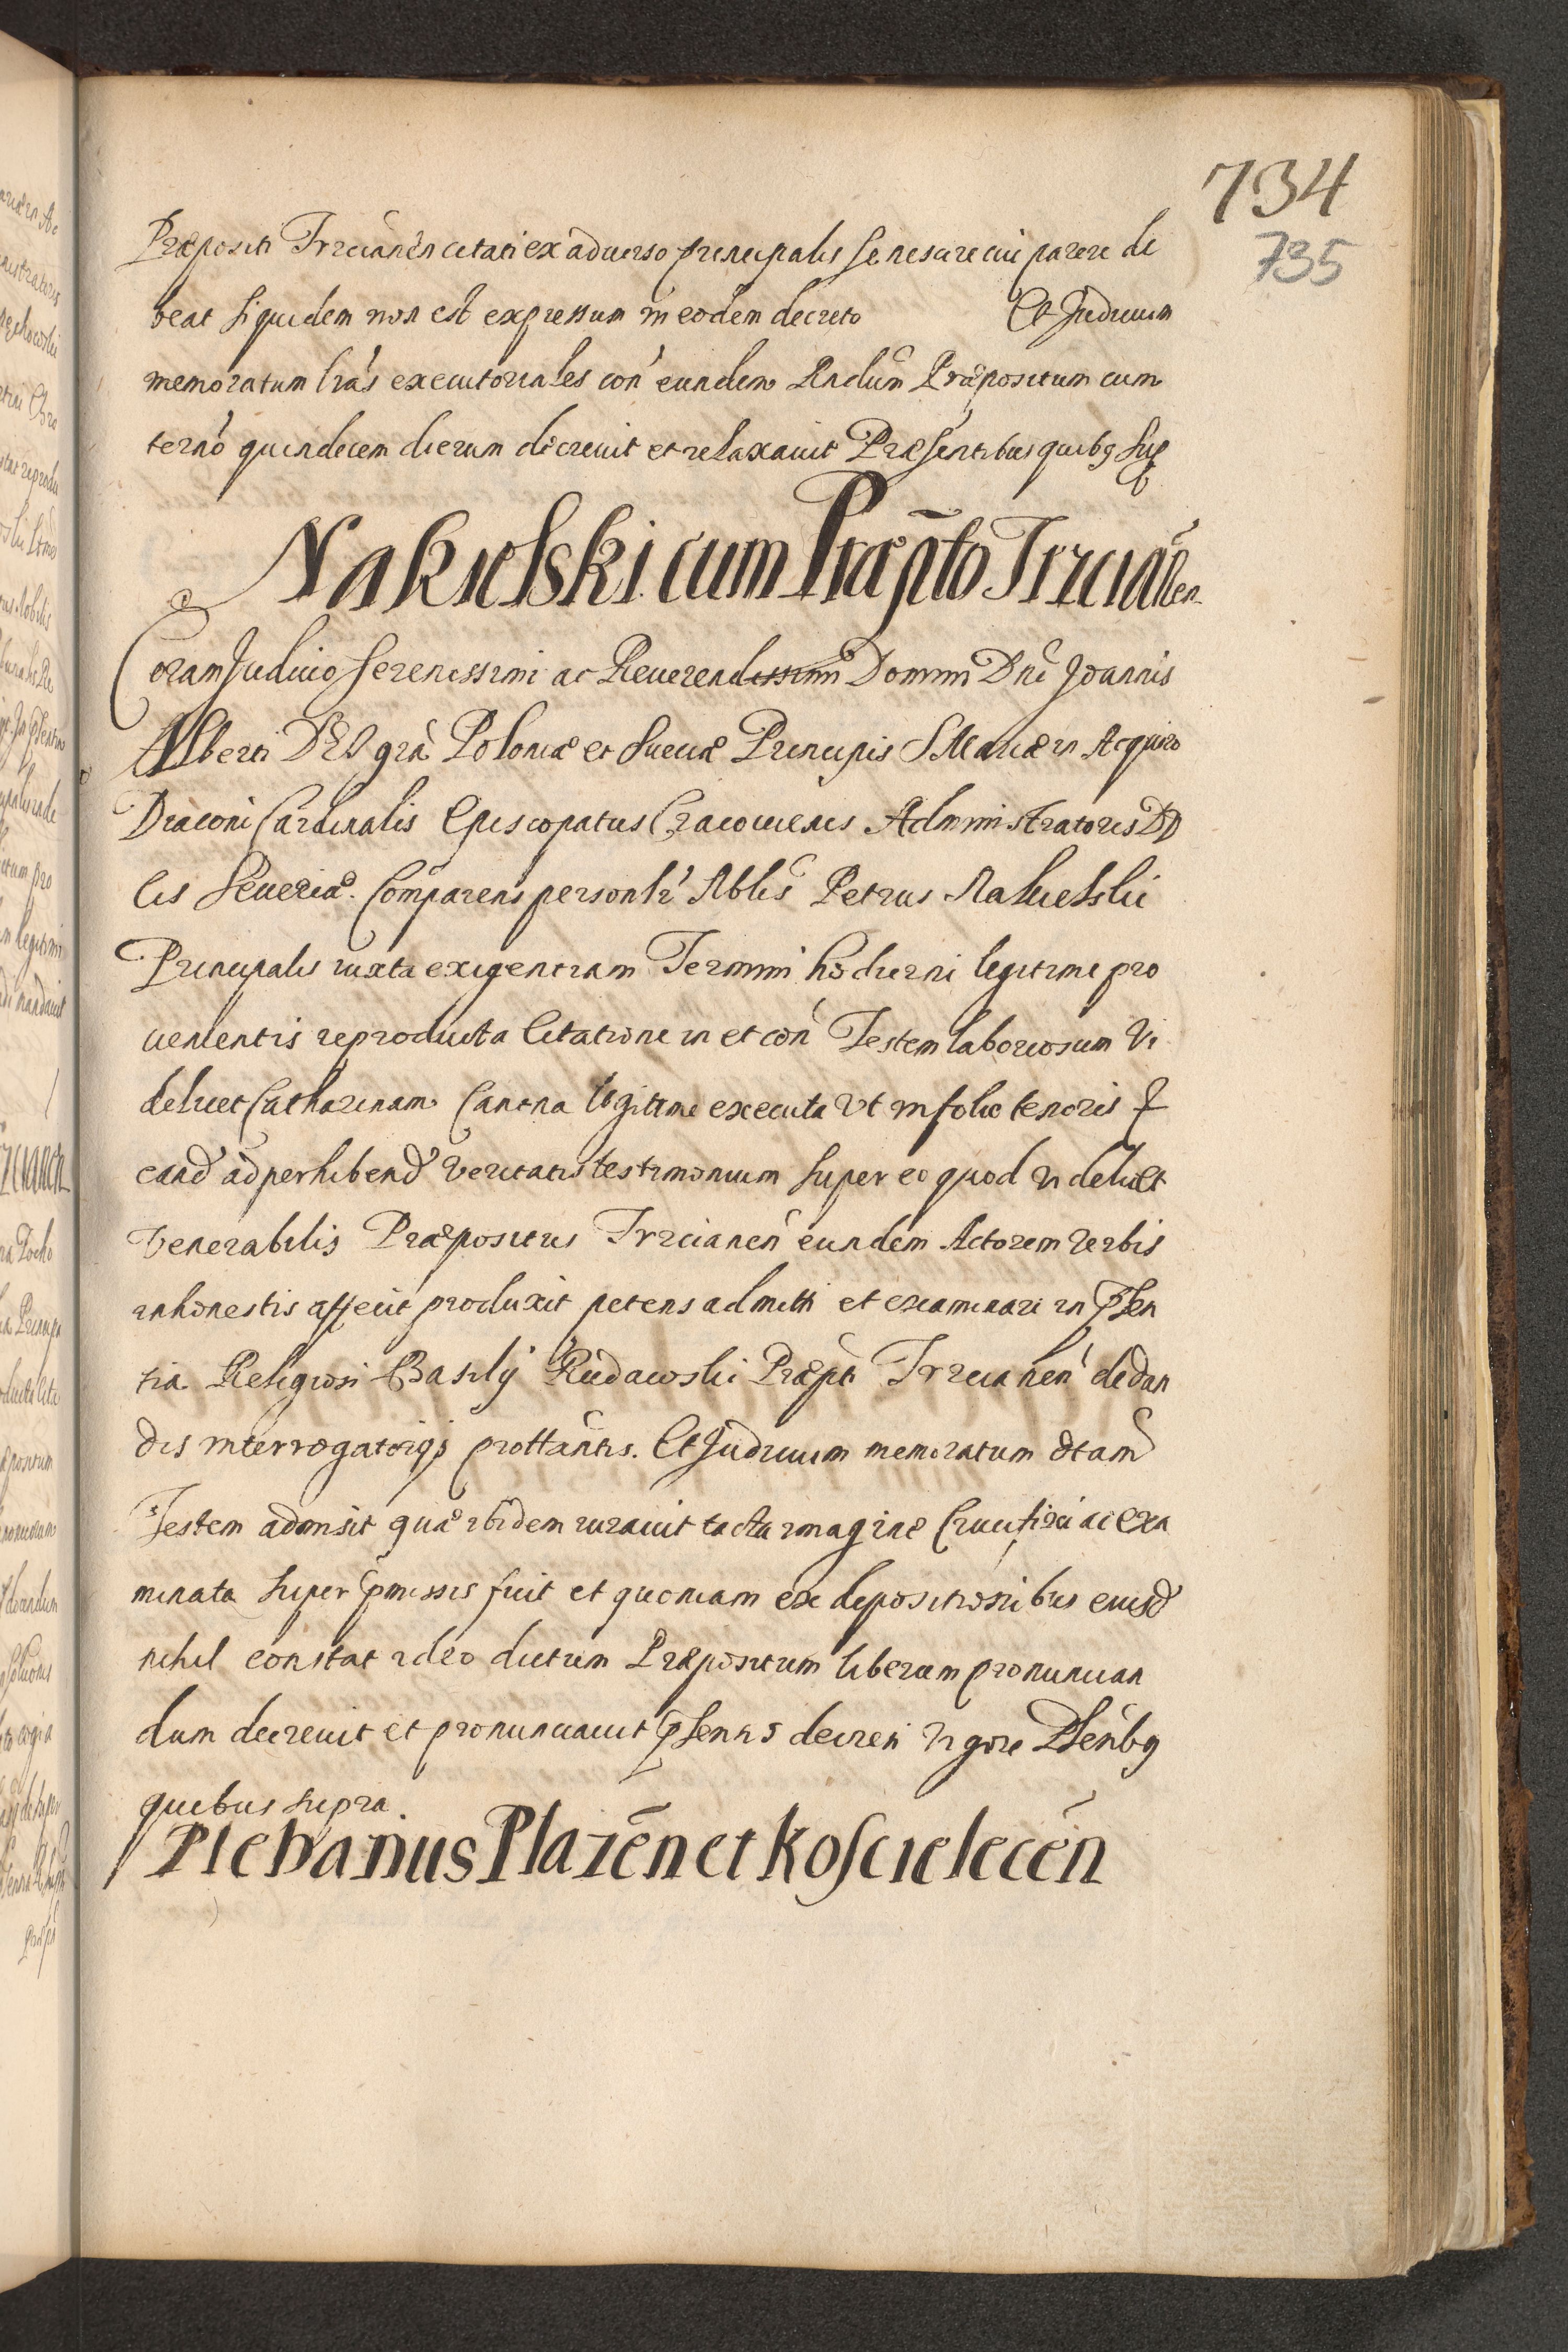 734
735
Præpositi Trzcianen citati ex aduerso principalis se nescire cui parere de
beat siquidem non est expressum in eodem decreto Et Judicium
memoratum lrás executoriales con eundem Rndum Præpositum cum
termo quindecem dierum decreuit et relaxauit Præsentibus quibg sup
Nakielski cum Præpto Trzcianen
Coram Judicio Serenissimi ac Reuerendissimi Domini Dni Joannis
Alberti DEI gra Poloniæ et Sueciæ Principis S Mariæ in Aequiro
Diaconi Cardinalis Episcopatus Cracouiensis Administratoris D
cis Seueriæ. Comparens personlr Nblis Petrus Nakielski
Principalis iuxta exigentiam Termini hodierni legitime pro
uenientis reproducta Citatione in et con Testem laboriosam Vi
delicet Catharinam legitime executa Vt in folio tenoris
eand ad perhibend Veritatis testimonium super eo quod videlicet
Venerabilis Præpositus Trzcianen eundem Actorem Verbis
inhonestis affecit produxit petens admitti et examinari in psen
tia Religiosi Basilij Rudawski Præpti Trzcianen de dan
dis interrogatorijs prottantis. Et Judicium memoratum dtam
Testem admisit quæ ibidem iurauit tacta imagine Crucifixi ac exa
minata super pmissis fuit et quoniam ex depositionibus eiusd
nihil constat ideo dictum Præpositum liberum pronuncian
dum decreuit et pronunciauit psentis decreti vigore Psenbg
quibus supra.
Plebanus Plazen et Koscielecen